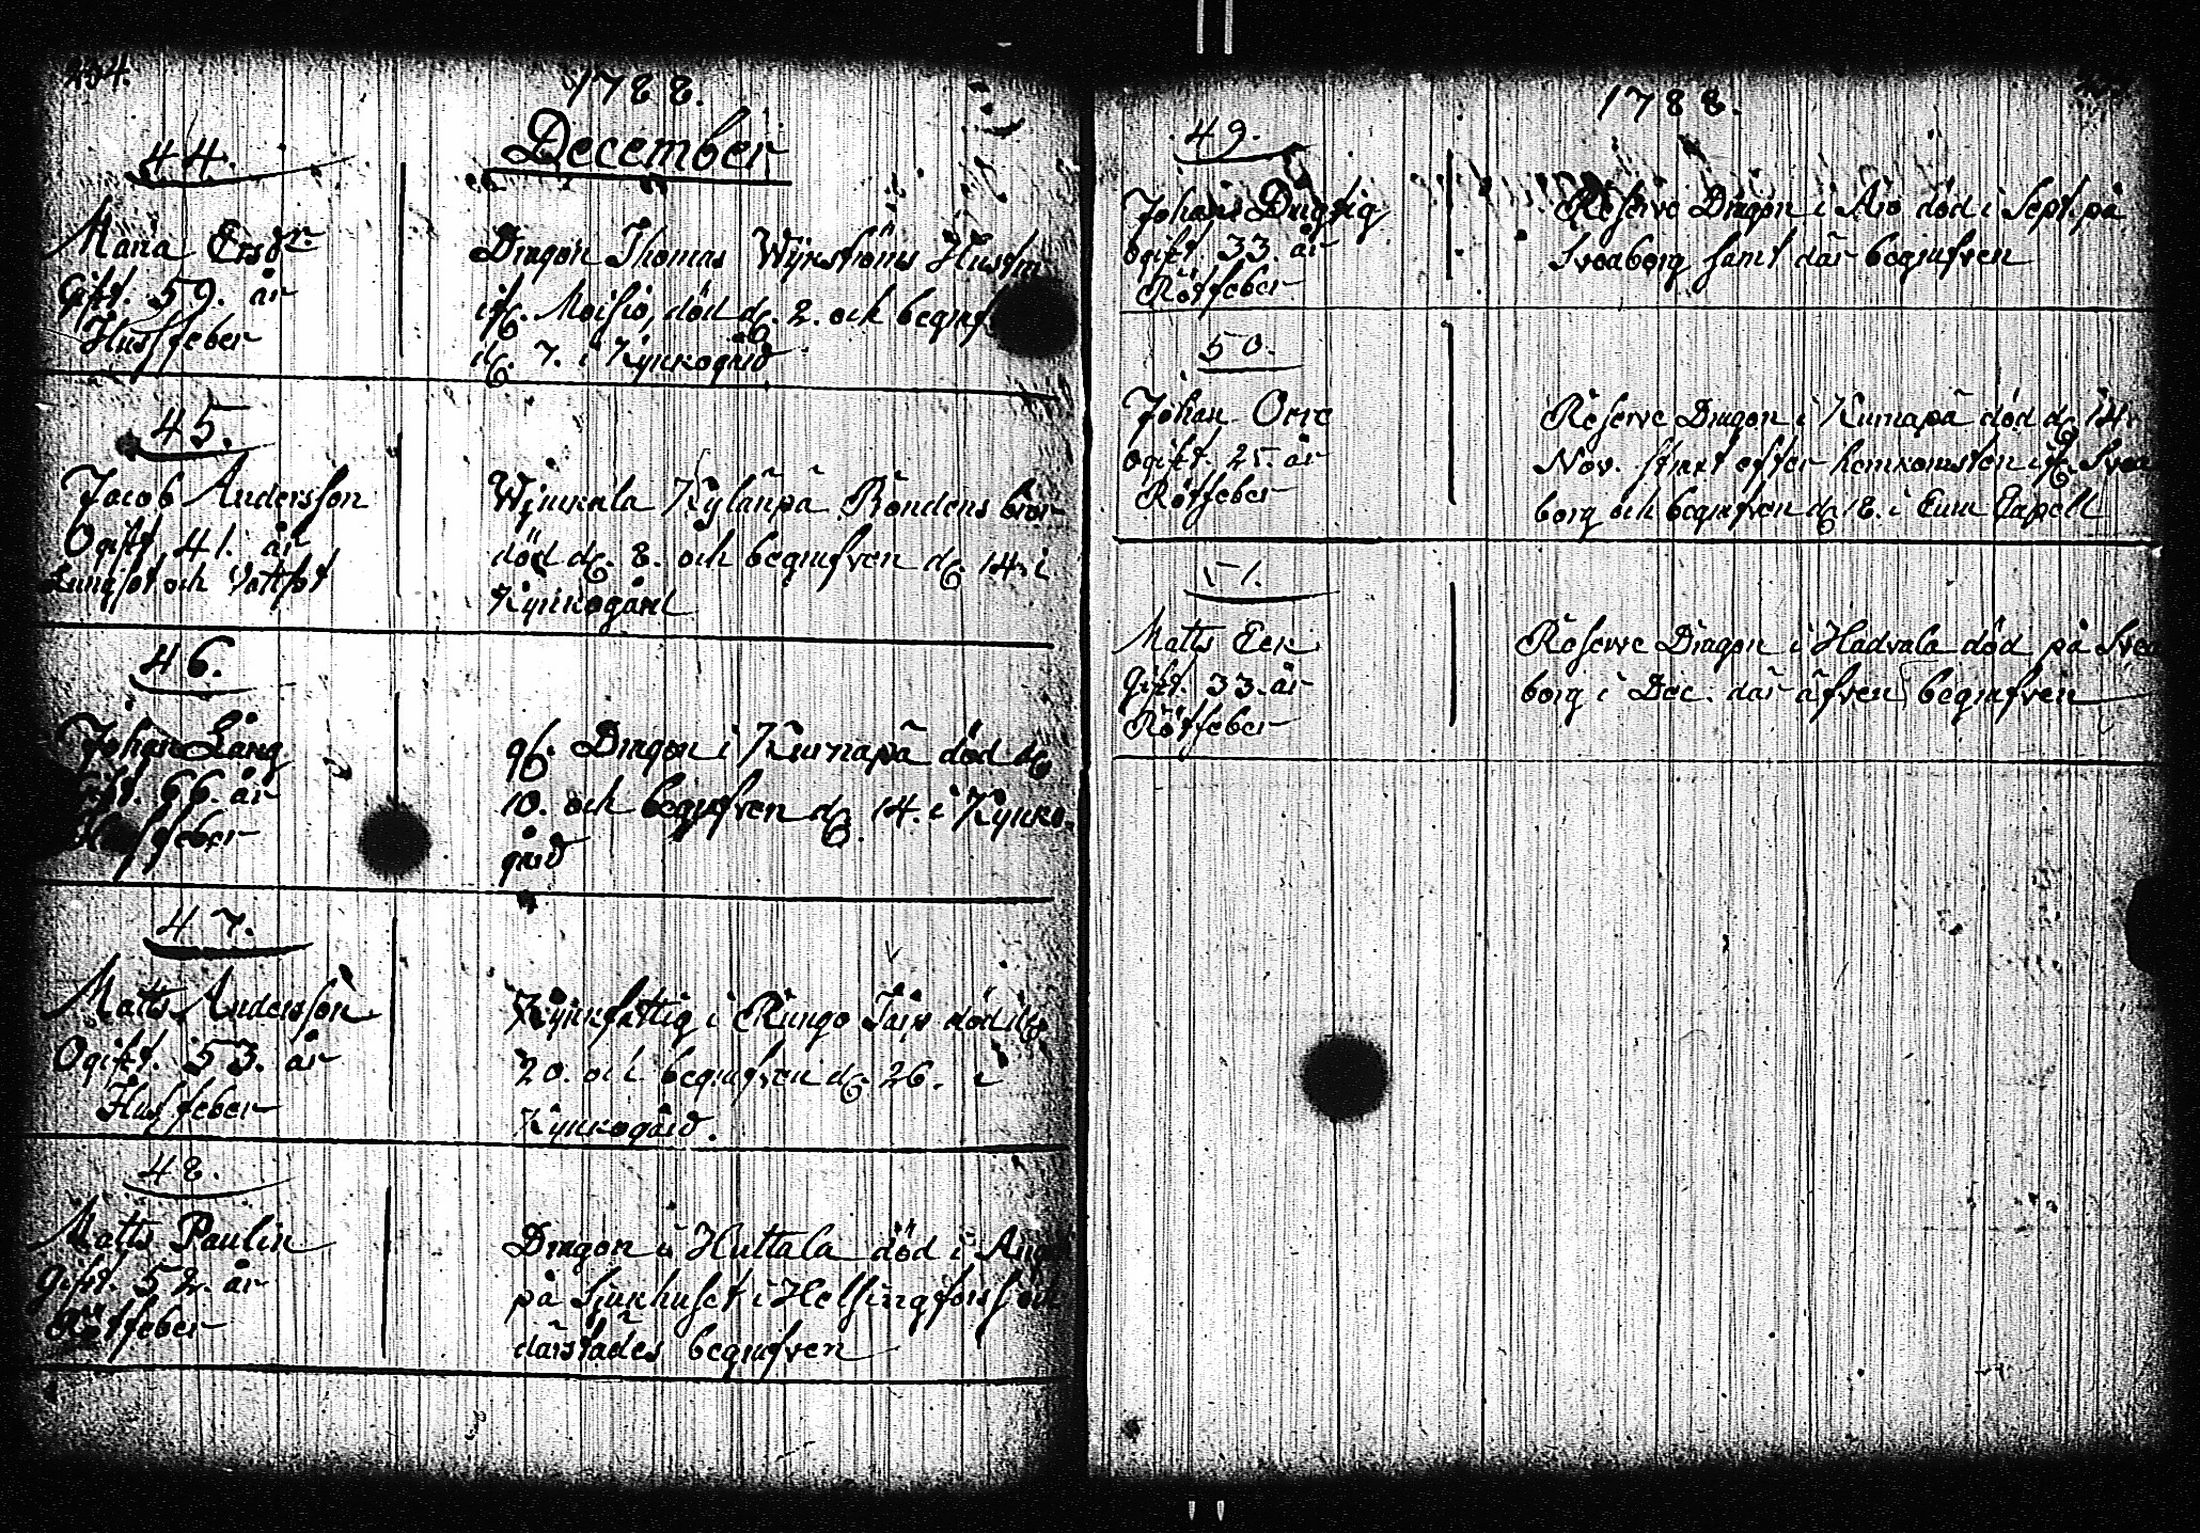 1788.
December
44.
Maria Ersdr
Gift. 59. år
Hussfeber
Dragon Thomas Wijkströms Hustru
ifr. Moisio, död d. 2. och begraf
d. 7. i Kyrkogård
45.
Jacob Andersson
Ogift 41. år
Lungsot och Vattsot
Kylänpä Bondens bror
död d. 8. och begrafven d. 14. i
Kyrkogård
46.
Johan Lång
66. år
feber
Dragon i Kurnapä död d.
10. och begrafven d. 14. i Kyrko-
gård
47.
Matts Andersson
Ogift. 53. år
Hussfeber
Kyrkfattig i död d.
20. och begrafven d. 26. i
Kyrkogård.
48.
Matts Paulin
gift. 52. år
Rötfeber
Dragon i Huttala död i Aug
på Sjukhuset i Helsingforss och
därstädes begrafven
1788.
49.
Johan Dugtig
ogift. 33. år
Rötfeber
Reserve Dragon i död i Sept. på
Sveaborg samt där begrafven
50.
Johan Orre
ogift. 25. år
Rötfeber
Reserve Dragon i Kurnapä död d. 14.
Nov. strart efter hemkomsten ifr. Svea
borg och begrafven d. 18. i Capell
51.
Matts Eek
Gift. 33. år
Rötfeber
Reserve Dragon i Hadvala död på Svea
borg i Dec. där äfven begrafven